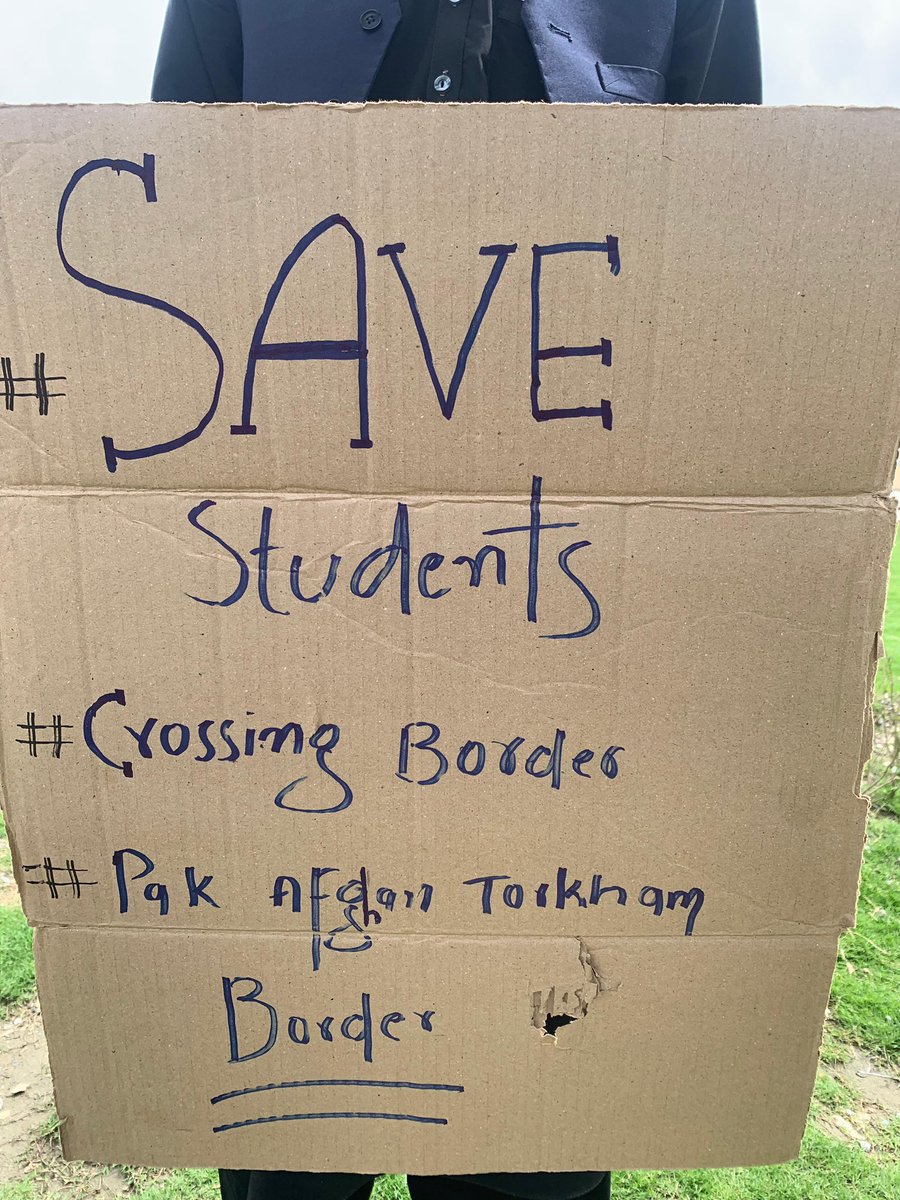 #SAVE
Students
#Crossing Border
#Pak Afghan Torkham
Border